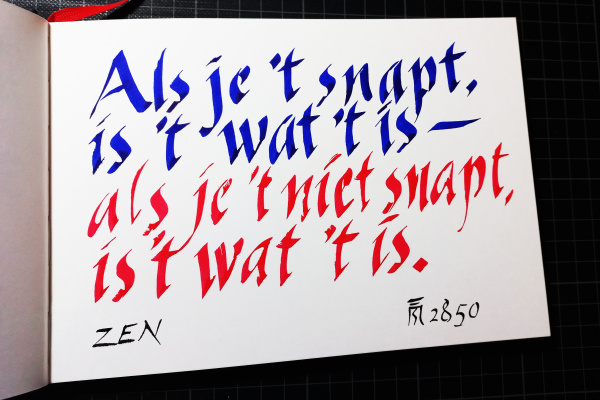 Als je 't snapt,
is 't wat 't is —
als je 't niet snapt,
is 't wat 't is.
ZEN
2850